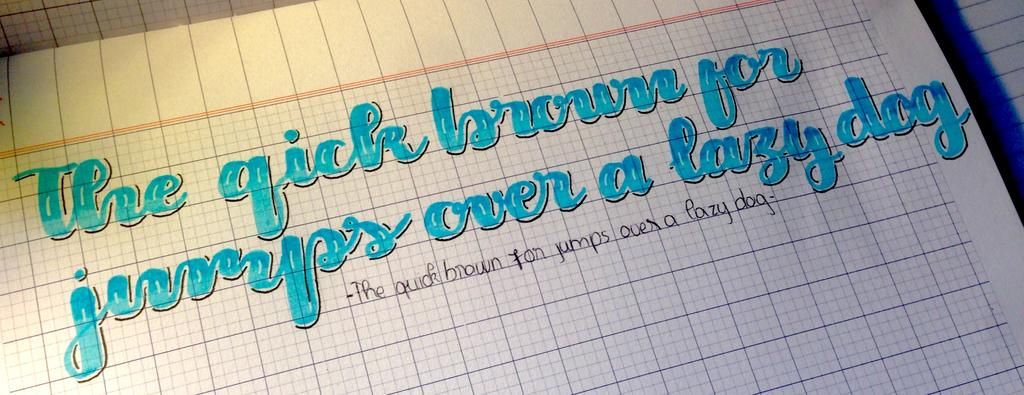 The qick brown for
jumps over a lazy dog
-The quick brown fon jumps over a lazy dog-